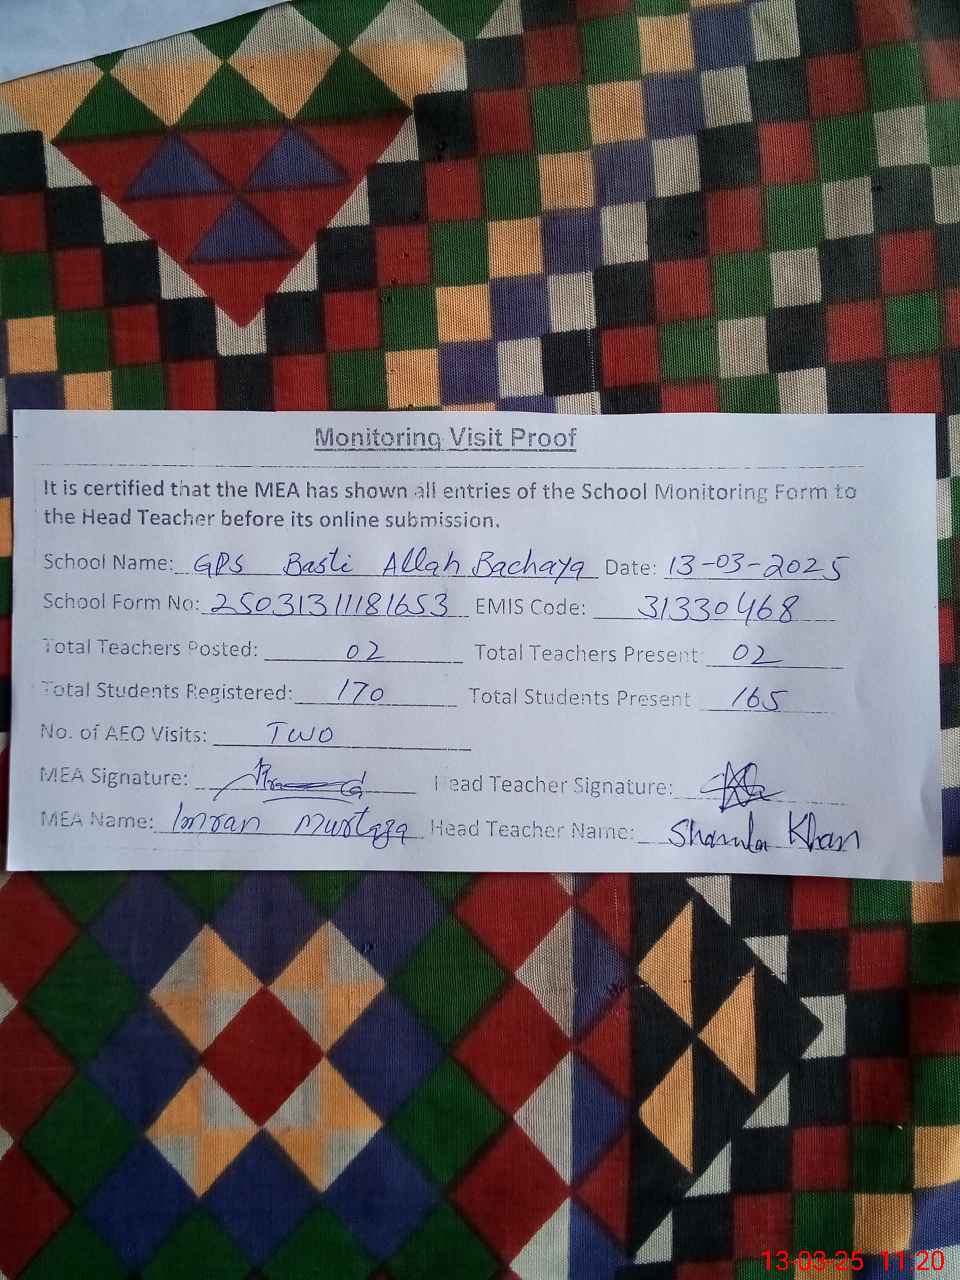 Monitoring Visit Proof
It is certified that the MEA has shown all entries of the School Monitoring Form to
the Head Teacher before its online submission.
School Name: GPS Basti Allah Bachaya Date: 13-03-2025
School Form No: 25031311181653 EMIS Code: 31330468
Total Teachers Posted: 02 Total Teachers Present: 02
Total Students Registered: 170 Total Students Present 165
No. of AEO Visits: Two
MEA Signature: Head Teacher Signature:
MEA Name: Imran Murtaza Head Teacher Name: Khan
13-03-25 11:20